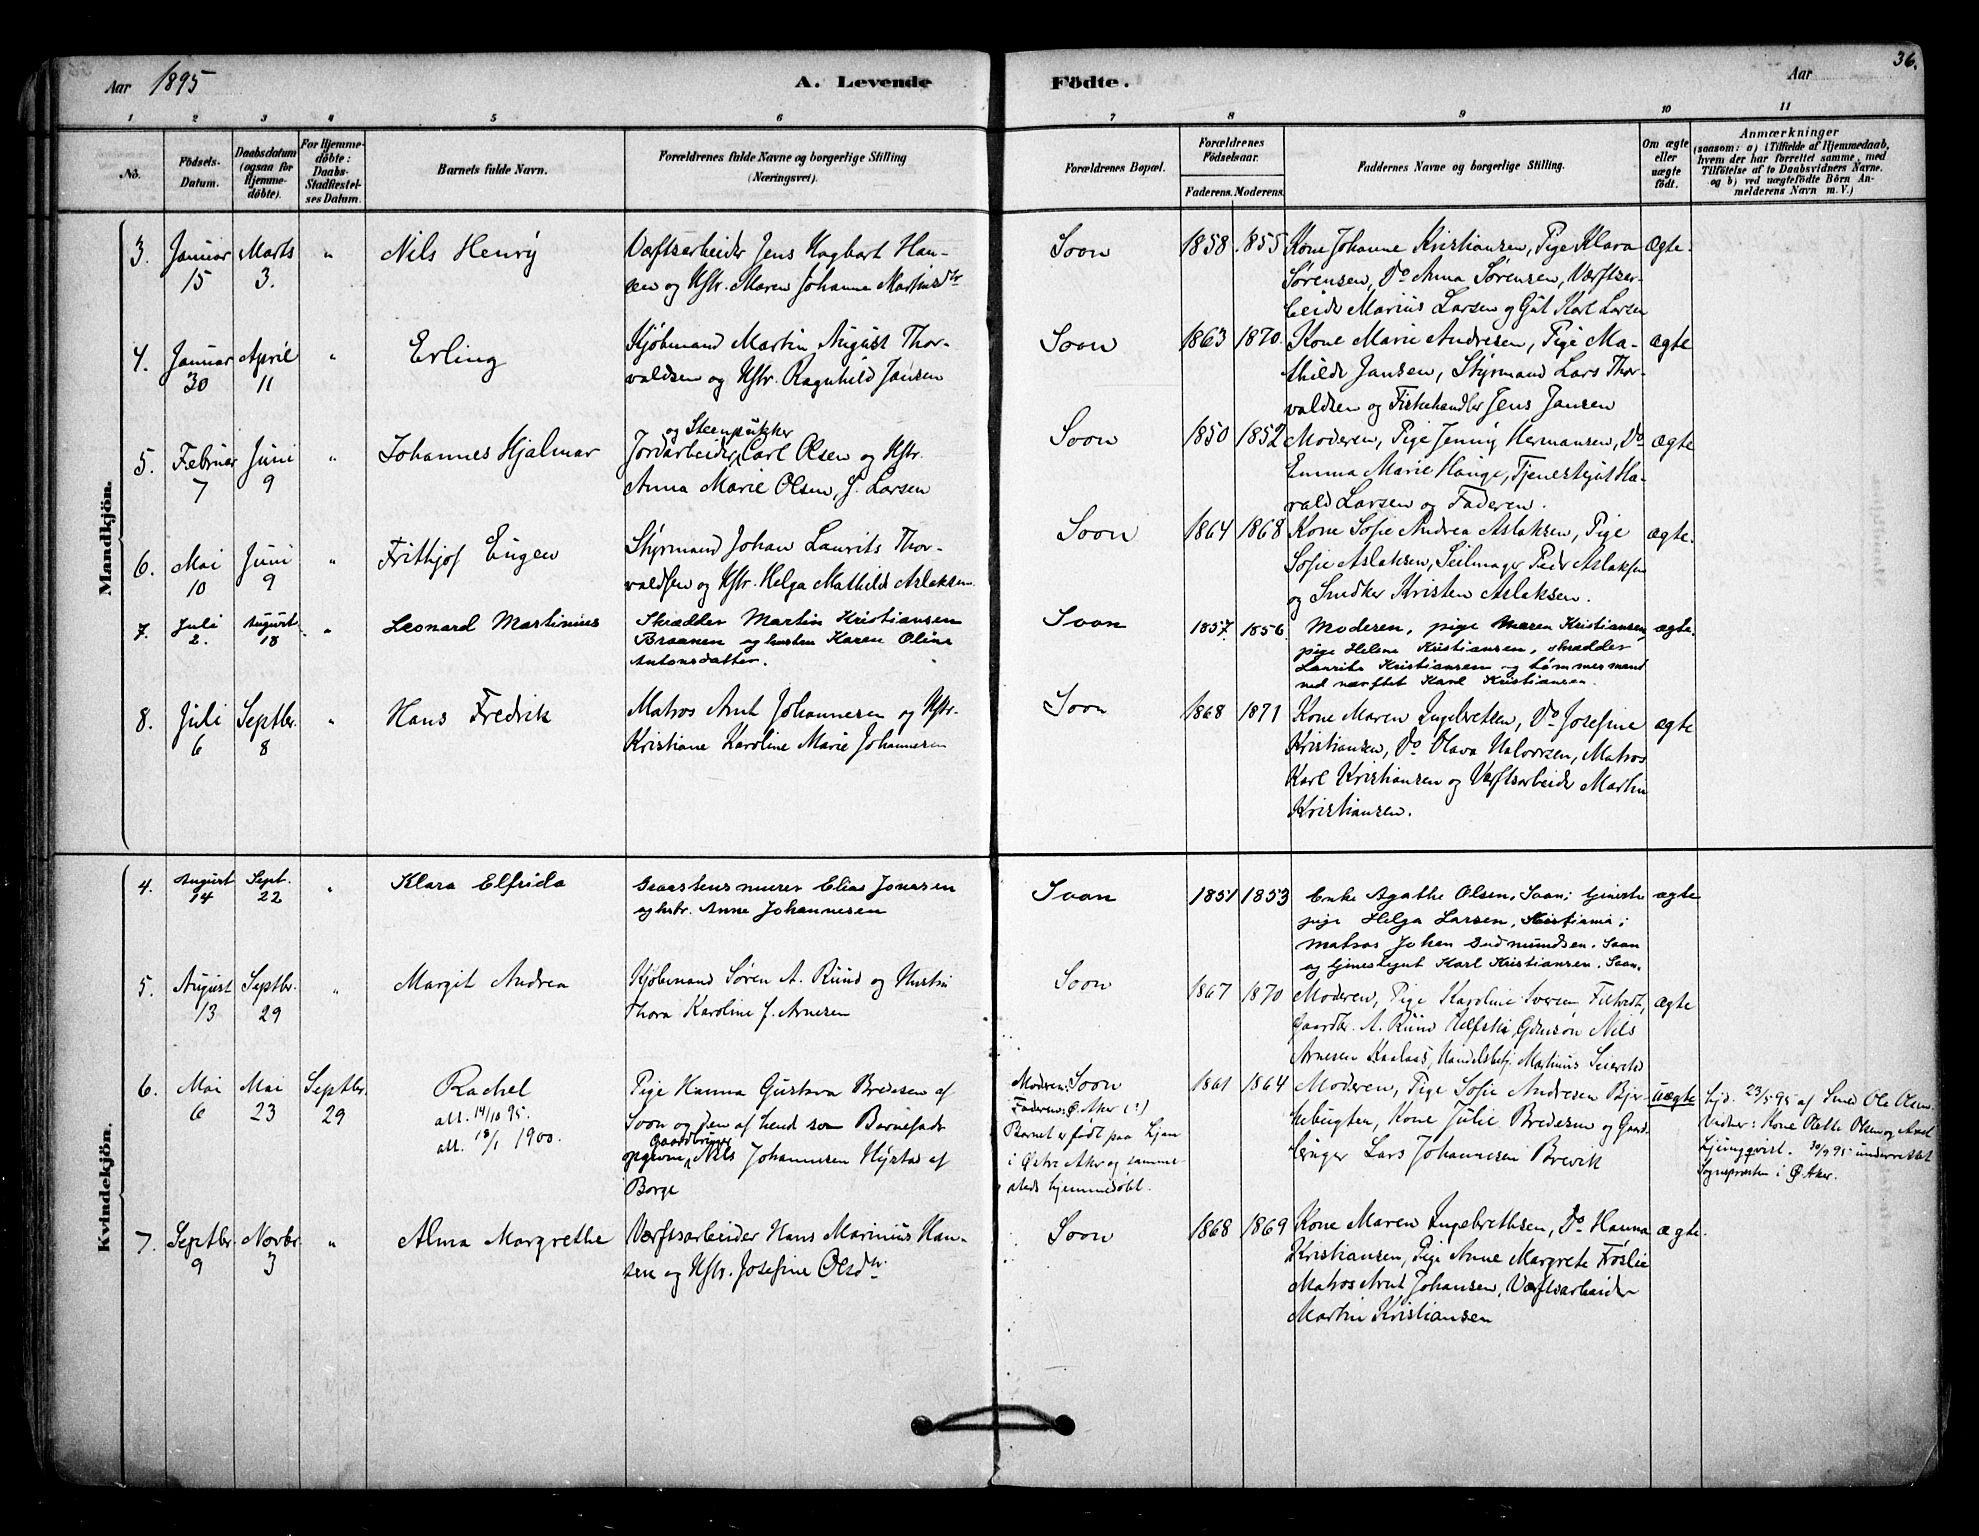 Aar 1895
A. Levende
Födte.
Aar
36.
1 2 3 4 5 6 7 8 9 10 11
No.
Födsels-
Datum.
Daabsdatum
(ogsaa for
Hjemme-
döbte).
For Hjemme-
döbte:
Daabs-
Stadfæstel-
ses Datum.
Barnets fulde Navn.
Forældrenes fulde Navne og borgerlige Stilling
(Næringsvei).
Forældrenes Bopæl.
Forældrenes
Födselsaar.
Faderens. Moderens.
Faddernes Navne og borgerlige Stilling.
Om ægte
eller
uægte
født.
Anmærkninger
(saasom: a) i Tilfælde af Hjemmedaab,
hvem der har forrettet samme, med
Tilföielse af to Daabsvidners Navne,
og b) ved uægtefödte Börn An-
melderens Navn m. V.)
Mandkjön.
3. Januar 15 Marts 3. "
Nils Henry
Værftsarbeider Jens Hagbart Han-
sen og Hstr. Maren Johanne Martinsdtr
Soon
1858. 1855
Kone Johanne Kristiansen, Pige Klara
Sørensen, Do Anna Sørensen, Værftsar-
beider Marius Larsen og Gut Karl Larsen
ægte.
4. Januar 30 April 11 "
Erling
Kjøbmand Martin August Thor-
valdsen og Hstr. Ragnhild Jansen
Soon
1863 1870.
Kone Marie Andresen, Pige Ma-
thilde Jansen, Styrmand Lars Thor-
valdsen og Fiskehandler Jens Jansen
ægte
5. Februar 7 Juni 9 "
Johannes Hjalmar
og Steenpukker
Jordarbeider, Carl Olsen og Hstr.
Anna Marie Olsen, f. Larsen
Soon
1850 1852
Moderen, Pige Jenny Hermansen, Do
Emma Marie Hauge, Tjenestgut Ha-
rald Larsen og Faderen.
ægte
6. Mai 10 Juni 9 "
Frithjof Eugen
Styrmand Johan Laurits Thor-
valdsen og Hstr. Helga Mathilde Aslaksen
Soon
1864 1868
Kone Sofie Andrea Aslaksen, Pige
Sofie Aslaksen, Seilmager Peder Aslaksen
og Snedker Kristen Aslaksen.
ægte.
7. Juli 2. August 18 "
Leonard Martinius
Skrædder Martin Kristiansen
Braanen og hustru Karen Oline
Antonsdatter.
Soon
1857. 1856.
Moderen, pige Maren Kristiansen,
pige Helene Kristiansen, skrædder
Laurits Kristiansen og tømmermand
ved værftet Karl Kristiansen.
ægte.
8. Juli 6 Septbr. 8 "
Hans Fredrik
Matros Arnt Johannesen og Hstr.
Kristiane Karoline Marie Johannesen
Soon
1868 1871
Kone Maren Ingebretsen, Do Josefine
Kristiansen, Do Olava Halvorsen, Matros
Karl Kristiansen og Værftsarbeider Martin
Kristiansen.
ægte
Kvindekjön.
4. August 14 Sept. 22 "
Klara Elfrida
Graastensmurer Elias Jonasen
og hstr. Anne Johannesen
Soon
1851 1853
Enke Agathe Olsen, Soon; tjeneste
pige Helga Larsen, Kristiania;
matros Johan Gudmundsen. Soon
og tjenestgut Karl Kristiansen. Soon.
ægte
5. August 13 Septbr. 29 "
Margit Andrea
Kjøbmand Søren A. Ruud og Hustru
Thora Karoline f. Arnesen
Soon
1867 1870
Moderen, Pige Karoline Iversen
Gaardbr. A. Ruud Nils
Arnesen Martinius
ægte
6. Mai 6 Mai 23 Septbr. 29
Rachel
att. 14/10 95.
att. 18/1 1900.
Pige Hanna Gustava Bredesen af
Soon og den af hende som Barnefader
opgivne Gaardbruger Nils Johannesen Hyrtas af
Borge
Moderen: Soon
Faderen: Ø. Aker (?)
Barnet er født paa Ljan
i Østre Aker og samme-
steds hjemmedøbt.
1861 1864
Moderen, Pige Sofie Andresen Bjer-
kebugten, Kone Julie Bredesen og Gaard-
bruger Lars Johannesen Brevik
uægte
hjd. 23/5 95 af Smed Ole Olsen.
Vidner: Kone Olette Olsen og Axel
Ljungqvist. 30/9 95 underrettet
Sognepresten i Ø. Aker.
7. Septbr. 9 Novbr. 3 "
Alma Margrethe
Værftsarbeider Hans Marinius Han-
sen og Hstr. Josefine Olsdtr.
Soon
1868 1869
Kone Maren Ingebrethsen, Do Hanna
Kristiansen, Pige Anne Margrete Frøslie
Matros Arnt Johansen, Værftsarbeider
Martin Kristiansen
ægte.